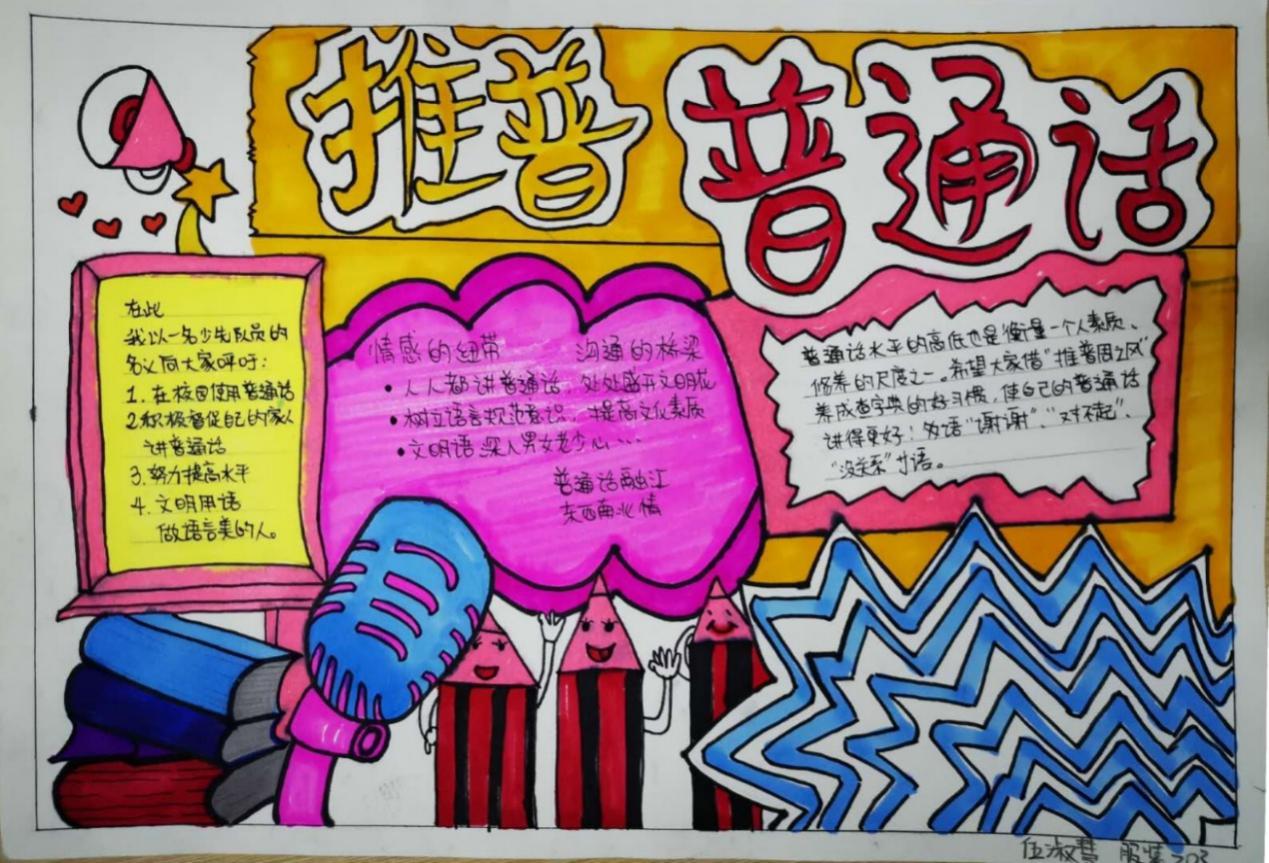 推普
普通话
在此
我以一名少先队员的
名义向大家呼吁：
1. 在校园使用普通话
2 积极督促自己的家人
讲普通话
3. 努力提高水平
4. 文明用语
做语言美的人。
情感的纽带 沟通的桥梁
• 人人都讲普通话，处处盛开文明花
• 树立语言规范意识，提高文化素质
• 文明语 深入男女老少心、、、
普通话融汇
东西南北情
普通话水平的高低也是衡量一个人素质、
修养的尺度之一。希望大家借“推普周之风”
养成查字典的好习惯，使自己的普通话
讲得更好！勿语“谢谢”、“对不起”、
“没关系”廿语。
伍淑慧